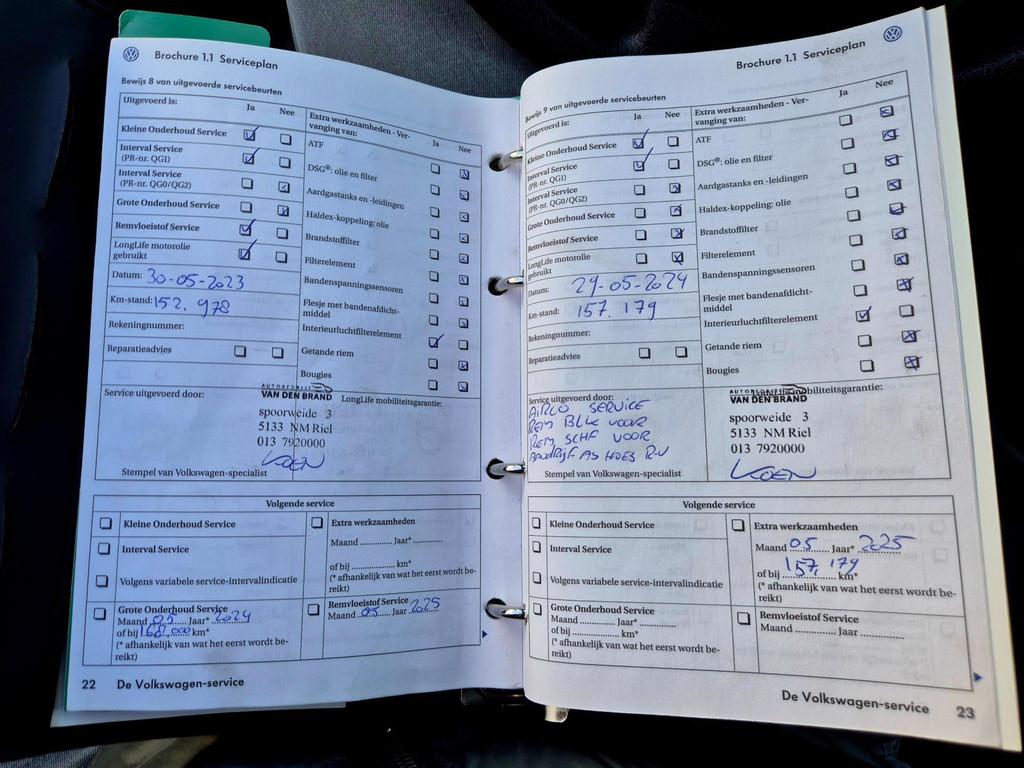 Brochure 1.1 Serviceplan
Bewijs 8 van uitgevoerde servicebeurten
Uitgevoerd is:
Ja Nee
Kleine Onderhoud Service
Interval Service
(PR-nr. QG1)
Interval Service
(PR-nr. QG0/QG2)
Grote Onderhoud Service
Remvloeistof Service
LongLife motorolie
gebruikt
Datum: 30-05-2023
Km-stand: 152.978
Rekeningnummer:
Reparatieadvies
Extra werkzaamheden - Ver-
vanging van:
Ja Nee
ATF
DSG®: olie en filter
Aardgastanks en -leidingen
Haldex-koppeling: olie
Brandstoffilter
Filterelement
Bandenspanningssensoren
Flesje met bandenafdicht-
middel
Interieurluchtfilterelement
Getande riem
Bougies
Service uitgevoerd door:
LongLife mobiliteitsgarantie:
AUTOBEDRIJF
VAN DEN BRAND
spoorweide 3
5133 NM Riel
013 7920000
KOEN
Stempel van Volkswagen-specialist
Volgende service
Kleine Onderhoud Service
Interval Service
Volgens variabele service-intervalindicatie
Grote Onderhoud Service
Maand 05 Jaar* 2024
of bij 168.000 km*
(* afhankelijk van wat het eerst wordt be-
reikt)
Extra werkzaamheden
Maand ............. Jaar* .............
of bij ............. km*
(* afhankelijk van wat het eerst wordt be-
reikt)
Remvloeistof Service
Maand 05 Jaar 2025
22 De Volkswagen-service
Brochure 1.1 Serviceplan
Bewijs 9 van uitgevoerde servicebeurten
Uitgevoerd is:
Ja Nee
Kleine Onderhoud Service
Interval Service
(PR-nr. QG1)
Interval Service
(PR-nr. QG0/QG2)
Grote Onderhoud Service
Remvloeistof Service
LongLife motorolie
gebruikt
Datum: 29-05-2024
Km-stand: 157.179
Rekeningnummer:
Reparatieadvies
Extra werkzaamheden - Ver-
vanging van:
Ja Nee
ATF
DSG®: olie en filter
Aardgastanks en -leidingen
Haldex-koppeling: olie
Brandstoffilter
Filterelement
Bandenspanningssensoren
Flesje met bandenafdicht-
middel
Interieurluchtfilterelement
Getande riem
Bougies
Service uitgevoerd door:
AIRCO SERVICE
REM BLK VOOR
REM SCHF VOOR
AANDRIJF AS HOES R.V
Stempel van Volkswagen-specialist
mobiliteitsgarantie:
VAN DEN BRAND
spoorweide 3
5133 NM Riel
013 7920000
KOEN
Volgende service
Kleine Onderhoud Service
Interval Service
Volgens variabele service-intervalindicatie
Grote Onderhoud Service
Maand ............. Jaar* .............
of bij ............. km*
(* afhankelijk van wat het eerst wordt be-
reikt)
Extra werkzaamheden
Maand 05 Jaar* 2025
of bij 157.179 km*
(* afhankelijk van wat het eerst wordt be-
reikt)
Remvloeistof Service
Maand ............. Jaar .............
De Volkswagen-service 23